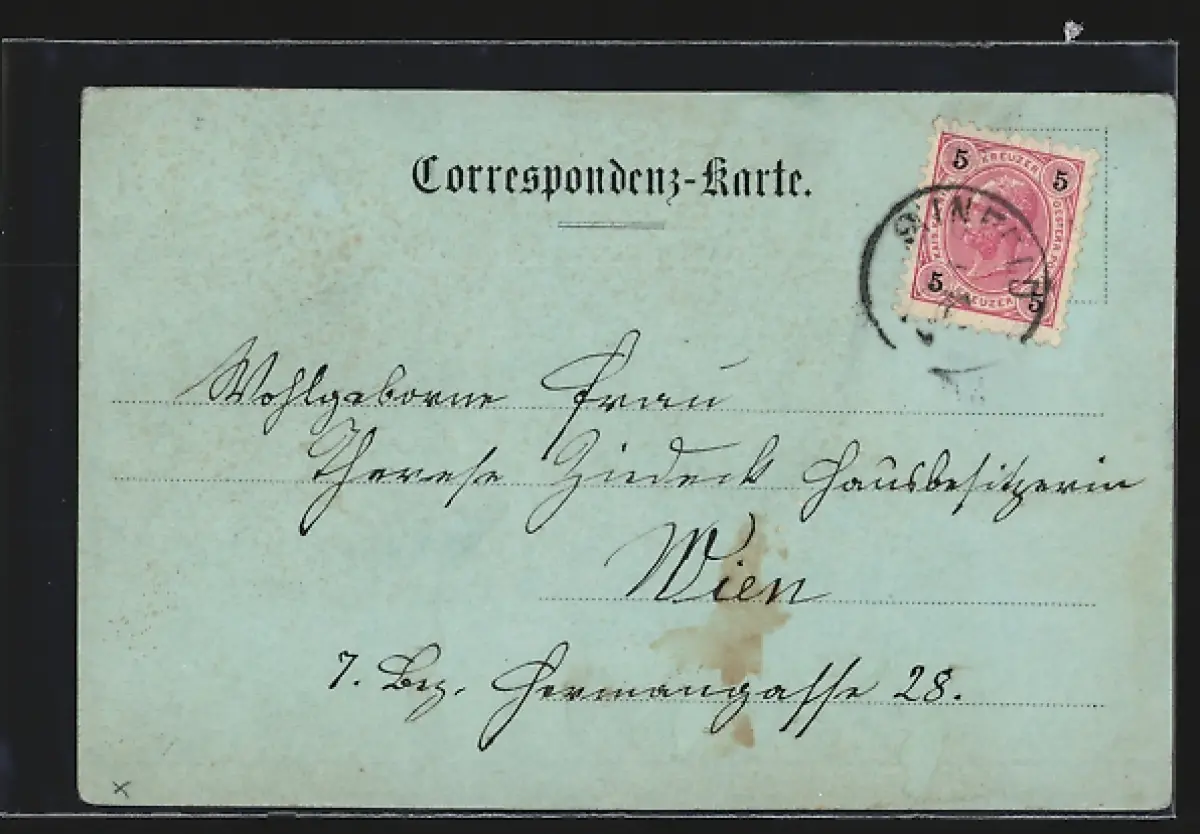 Correspondenz-Karte.
5 KREUZER 5
5 KREUZER 5
Wohlgeborne Frau
Therese Ziedeck Hausbesitzerin
Wien
7. Bez. Hermanngasse 28.